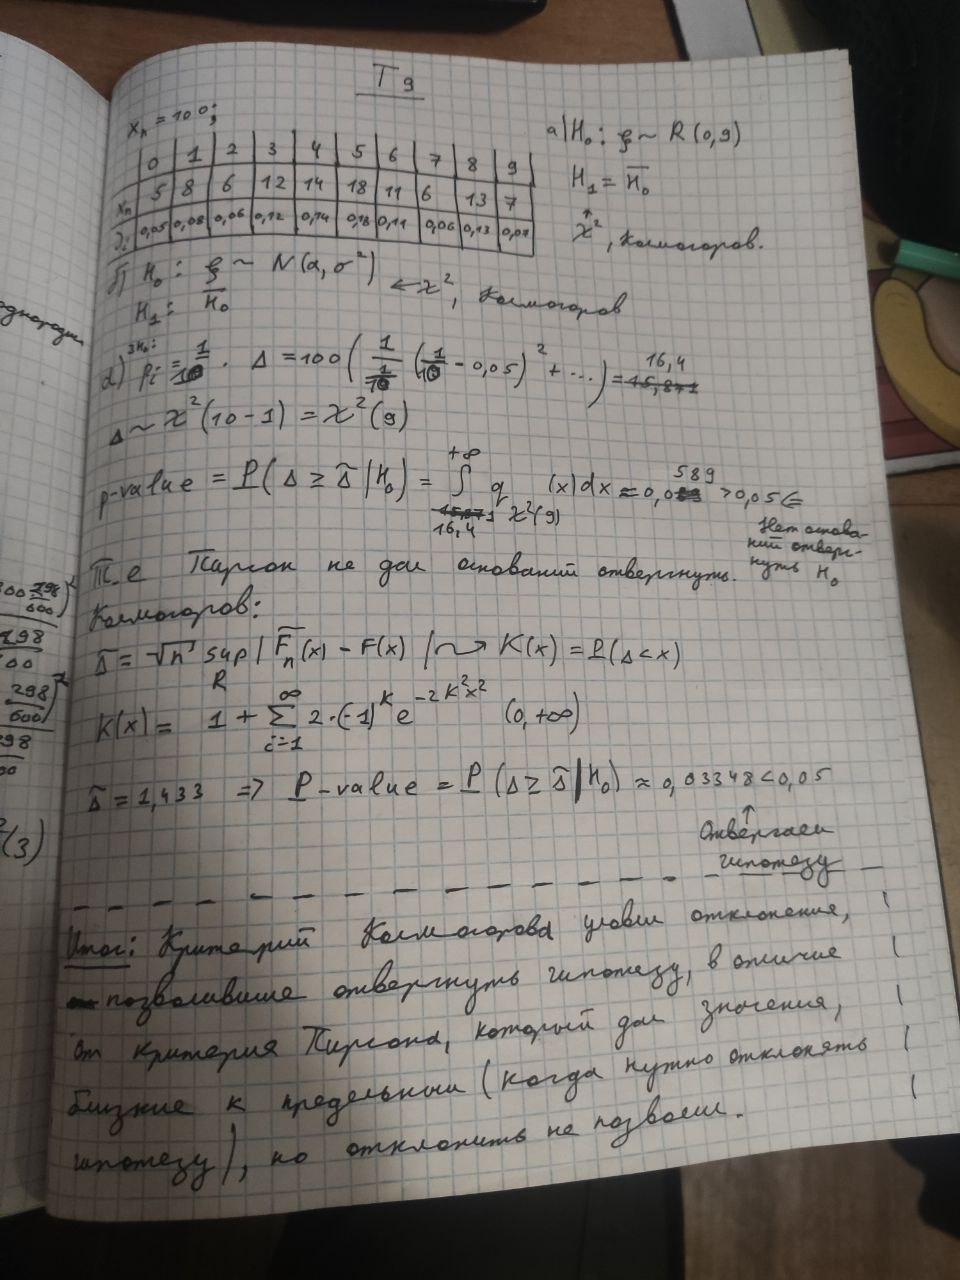 T 9
xₙ = 100;
а) H₀: ξ ~ R(0,9)
H₁ = H̅₀
χ², Колмогоров.
0 1 2 3 4 5 6 7 8 9
xₙ 5 8 6 12 14 18 11 6 13 7
0,05 0,08 0,06 0,12 0,14 0,18 0,11 0,06 0,13 0,07
б) H₀: ξ ~ N(a, σ²) ← χ², Колмогоров
H₁: H̅₀
a) pᵢ = 1/10. Δ = 100(1/(1/10) (1/10 - 0,05)² + ...) = 16,4
Δ ~ χ²(10-1) = χ²(9)
p-value = P(Δ ≥ Δ̃ | H₀) = ∫_{16,4}^{+∞} q_{χ²(9)}(x)dx ≈ 0,0589 > 0,05 ⇐
Нет основа-
ний отверг-
нуть H₀
Т.е Пирсон не дал оснований отвергнуть.
Колмогоров:
Δ̃ = √n sup_R |F̃ₙ(x) - F(x)| ⤳ K(x) = P(Δ<x)
K(x) = 1 + ∑_{i=1}^{∞} 2·(-1)^k e^{-2k²x²} (0,+∞)
Δ̃ = 1,433 => P-value = P(Δ ≥ Δ̃ | H₀) ≈ 0,03348 < 0,05
↑
Отвергаем
гипотезу
Итог: Критерий Колмогорова уловил отклонения,
позволившие отвергнуть гипотезу, в отличие
от критерия Пирсона, который дал значения,
близкие к предельным (когда нужно отклонять
гипотезу), но отклонить не позволил.
(3)